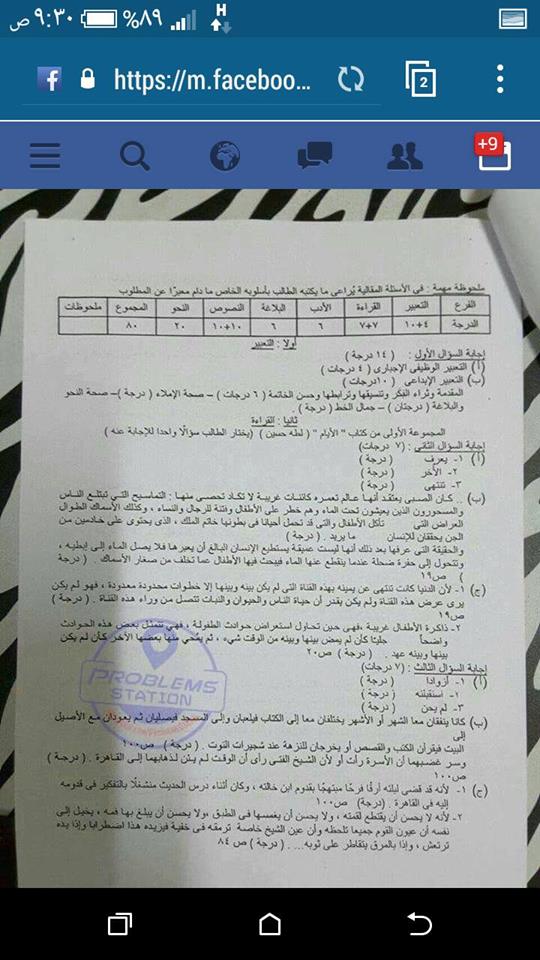 ٩:٣٠ ص
%٨٩
H
https://m.faceboo...
2
+9
ملحوظة مهمة : فى الأسئلة المقالية يُراعى ما يكتبه الطالب بأسلوبه الخاص ما دام معبرًا عن المطلوب
الفرع التعبير القراءة الأدب البلاغة النصوص النحو المجموع ملحوظات
الدرجة ٤+١٠ ٧+٧ ٦ ٦ ١٠+١٠ ٢٠ ٨٠
أولا : التعبير
إجابة السؤال الأول : ( ١٤ درجة )
(أ) التعبير الوظيفى الإجبارى ( ٤ درجات )
(ب) التعبير الإبداعى ( ١٠درجات )
المقدمة وثراء الفكر وتنسيقها وترابطها وحسن الخاتمة ( ٦ درجات ) – صحة الإملاء ( درجة )– صحة النحو
والبلاغة ( درجتان ) – جمال الخط ( درجة ) .
ثانيا : القراءة
المجموعة الأولى من كتاب " الأيام " ( لطه حسين ) (يختار الطالب سؤالا واحدا للإجابة عنه )
إجابة السؤال الثانى : (٧ درجات)
(أ) ١- يعرف ( درجة )
٢- الأخر ( درجة )
٣- تنتهى ( درجة )
(ب) .. كان الصبى يعتقد أنها عالم تعمره كائنات غريبة لا تكاد تحصى منها : التماسيح التى تبتلع الناس
والمسحورون الذين يعيشون تحت الماء وهم خطر على الأطفال وفتنة للرجال والنساء ، وكذلك الأسماك الطوال
العراض التى تأكل الأطفال والتى قد تحمل أحيانا فى بطونها خاتم الملك ، الذى يحتوى على خادمين من
الجن يحققان للإنسان ما يريد . ( درجة )
والحقيقة التى عرفها بعد ذلك أنها ليست عميقة يستطيع الإنسان البالغ أن يعبرها فلا يصل الماء إلى إبطيه ،
وتتحول إلى حفرة ضحلة عندما ينقطع عنها الماء فيبحث فيها الأطفال عما تخلف من صغار الأسماك . ( درجة
) ص١٩
(ج) ١- لأن الدنيا كانت تنتهى عن يمينه بهذه القناة التى لم يكن بينه وبينها إلا خطوات معدودة ، فهو لم يكن
يرى عرض هذه القناة ولم يكن يقدر أن حياة الناس والحيوان والنبات تتصل من وراء هذه القناة . ( درجة )
ص١٩
٢- ذاكرة الأطفال غريبة ،فهى حين تحاول استعراض حوادث الطفولة ، فهى تتمثل بعض هذه الحوادث
واضحاً جلياً كأن لم يمض بينها وبينه من الوقت شيء ، ثم يمَّحي منها بعضها الآخر كأن لم يكن
بينها وبينه عهد . ( درجة ) ص٢٠
إجابة السؤال الثالث : (٧ درجات)
(أ) ١- أزوادا ( درجة )
٢- استقبلته ( درجة )
٣- لم يحن ( درجة )
(ب) كانا ينفقان معا الشهر أو الأشهر يختلفان معا إلى الكتاب فيلعبان وإلى المسجد فيصليان ثم يعودان مع الأصيل
إلى
البيت فيقرأن الكتب والقصص أو يخرجان للنزهة عند شجيرات التوت . ( درجة ) ص١٠٠
وسر غضبهما أن الأسرة رأت أو لأن الشيخ الفتى رأى أن الوقت لم يئن لذهابهما إلى القاهرة . ( درجة )
ص١٠٠
(ج) ١- لأنه قد قضى ليلته أرقًا فرحًا مبتهجًا بقدوم ابن خالته ، وكان أثناء درس الحديث منشغلًا بالتفكير فى قدومه
إليه فى القاهرة . (درجة) ص١٠٠
٢- لأنه لا يحسن أن يقتطع لقمته ، ولا يحسن أن يغمسها فى الطبق ،ولا يحسن أن يبلغ بها فمه ، يخيل إلى
نفسه أن عيون القوم جميعا تلحظه وأن عين الشيخ خاصة ترمقه فى خفية فيزيده هذا اضطرابا وإذا يده
ترتعش ، وإذا بالمرق يتقاطر على ثوبه... . ( درجة ) ص ٨٤
PROBLEMS
STATION